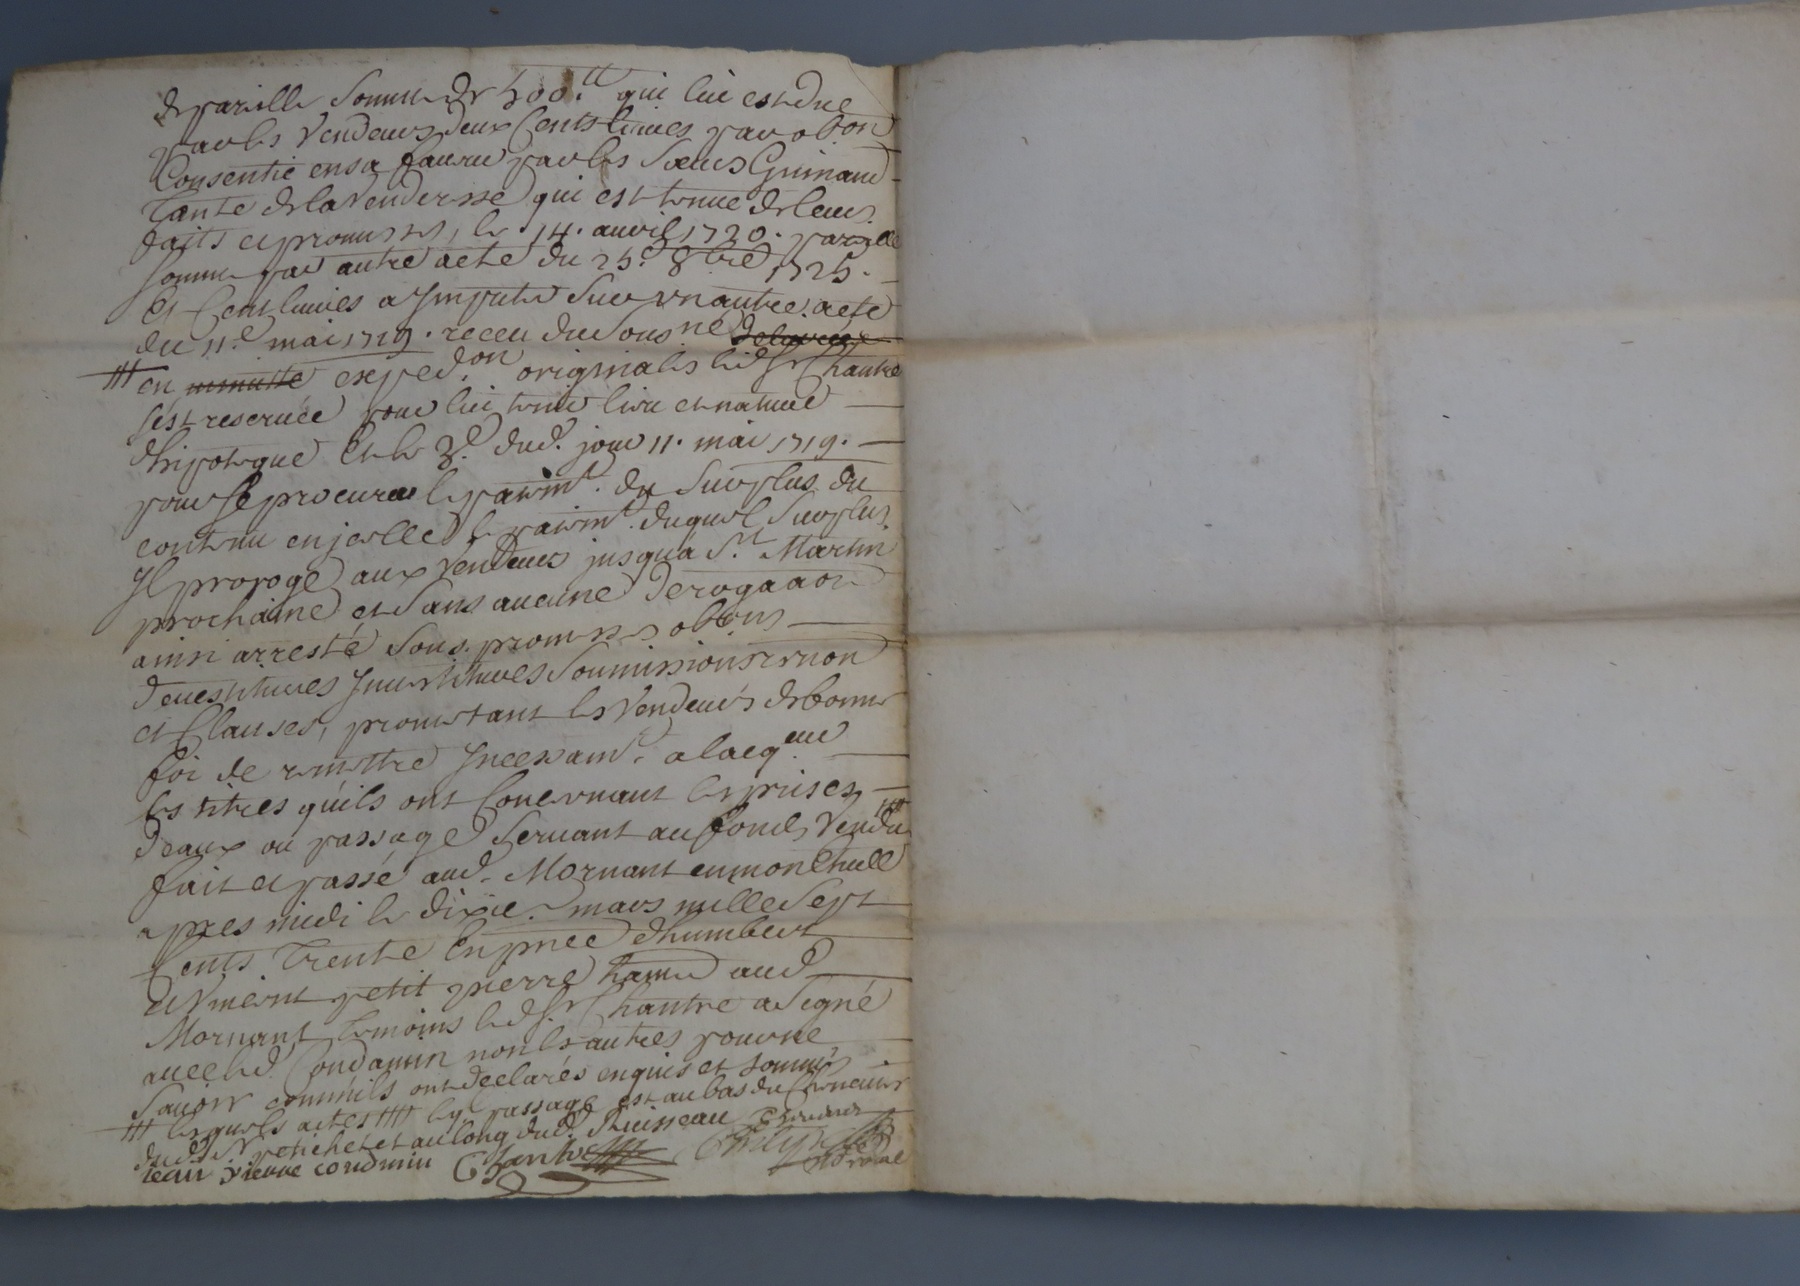 de pareille Somme de 500.ᵗᵗ qui lui est due
par les Vendeurs deux Cents livres par obon
Consentie en sa faveur par les Sœurs Guinand
Tante de la Venderesse qui est tenue de leurs
faits et promesses, le 14. auril 1720. pareille
Somme par autre acte du 25.ᵉ 8bre 1725.
Et Cent livres a Imputer Sur un autre acte
du 11.ᵉ mai 1719. receu du Sousⁿᵉ
╫ en minutte exped.on originales led Sr Chantre
s'est reservée pour lui tenir lieu et nature
dhipoteque Et le 3.ᵉ dud. jour 11. mai 1719.
pour Se procurer le paiemᵗ. du Surplus du
contenu en jcelle le paiemᵗ. duquel Surplus
Jl proroge aux Vendeurs jusqu'a Sᵗ. Martin
prochaine et Sans aucune derogaaon
ainsi arresté Sous promesses obons
devestitures Jnvestitures Soumissions renon
et Clauses, promettant les Vendeurs de bonne
foi de remettre Jncessamᵗ. a lacq.eur
les titres qu'ils ont Concernant les prises
deaux ou passage Servant au fonds Vendu ╫╫
fait et passé aud. Mornant en mon Etude
apres midi le dixie. mars mille Sept
Cents Trente En pnce d'humbert
et petit pierre aud
Mornant Temoins led Sr Chantre a Signé
avec led. Condamin non les autres pour ne
Savoir comm'ils ont declarés enquis et Sommés
╫ lesquels actes ╫╫ le passage est au bas du
dud. Sr petichet et au long dud. Ruisseau
jean pierre condmin Chantre